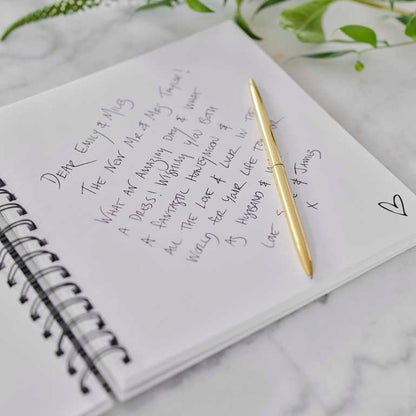 Dear Emily & Miles
The New Mr & Mrs Taylor!
What an amazing day & what
a dress! Wishing you both
a fantastic honeymoon &
all the love & luck in the
world for your life
as husband &
Love & James
x